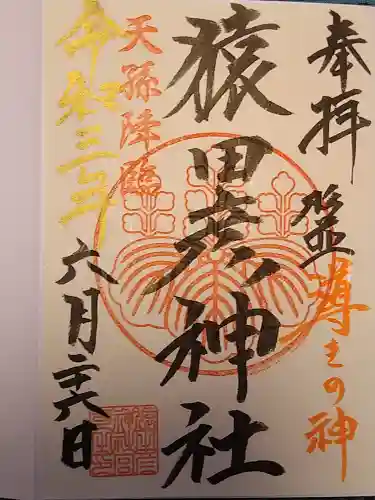 奉拝
導きの神
猿田彦神社
天孫降臨
令和三年
六月二十六日